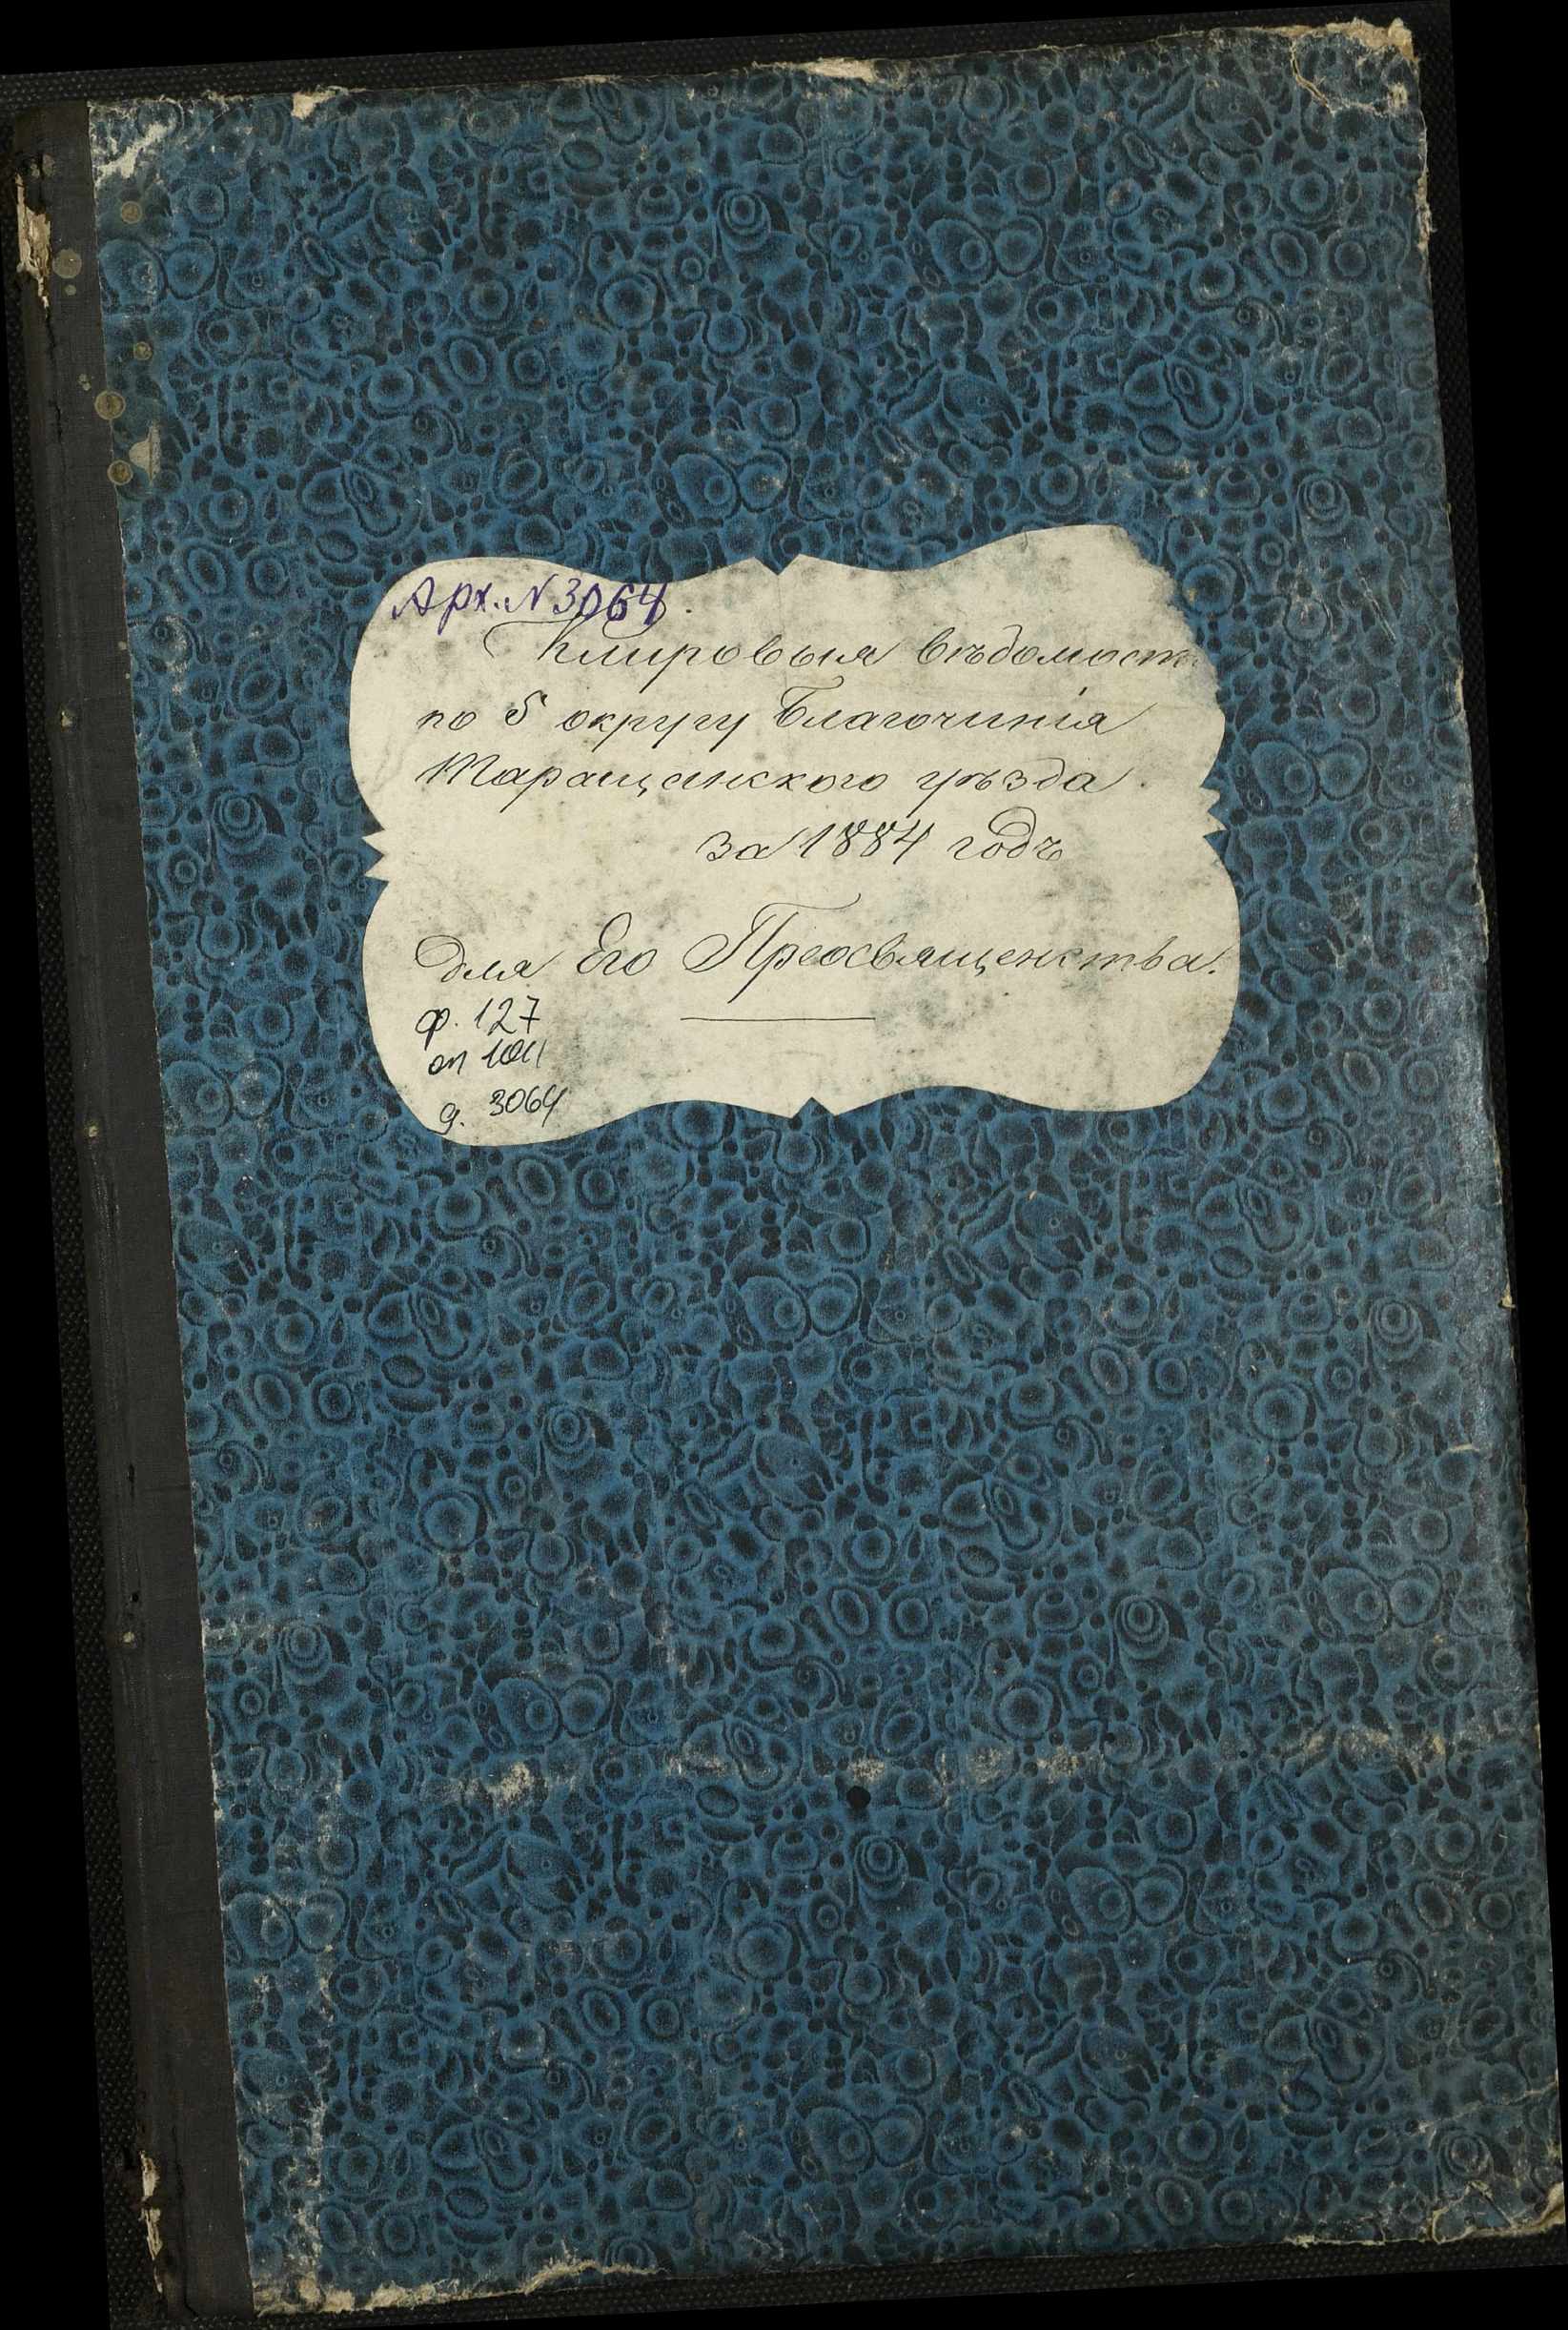 Арх. N 3064.
Клировыя вѣдомости
по 5 округу Благочинія
Таращанского уѣзда
за 1884 годъ
для Его Преосвященства.
ф. 127
оп 1011
д. 3064